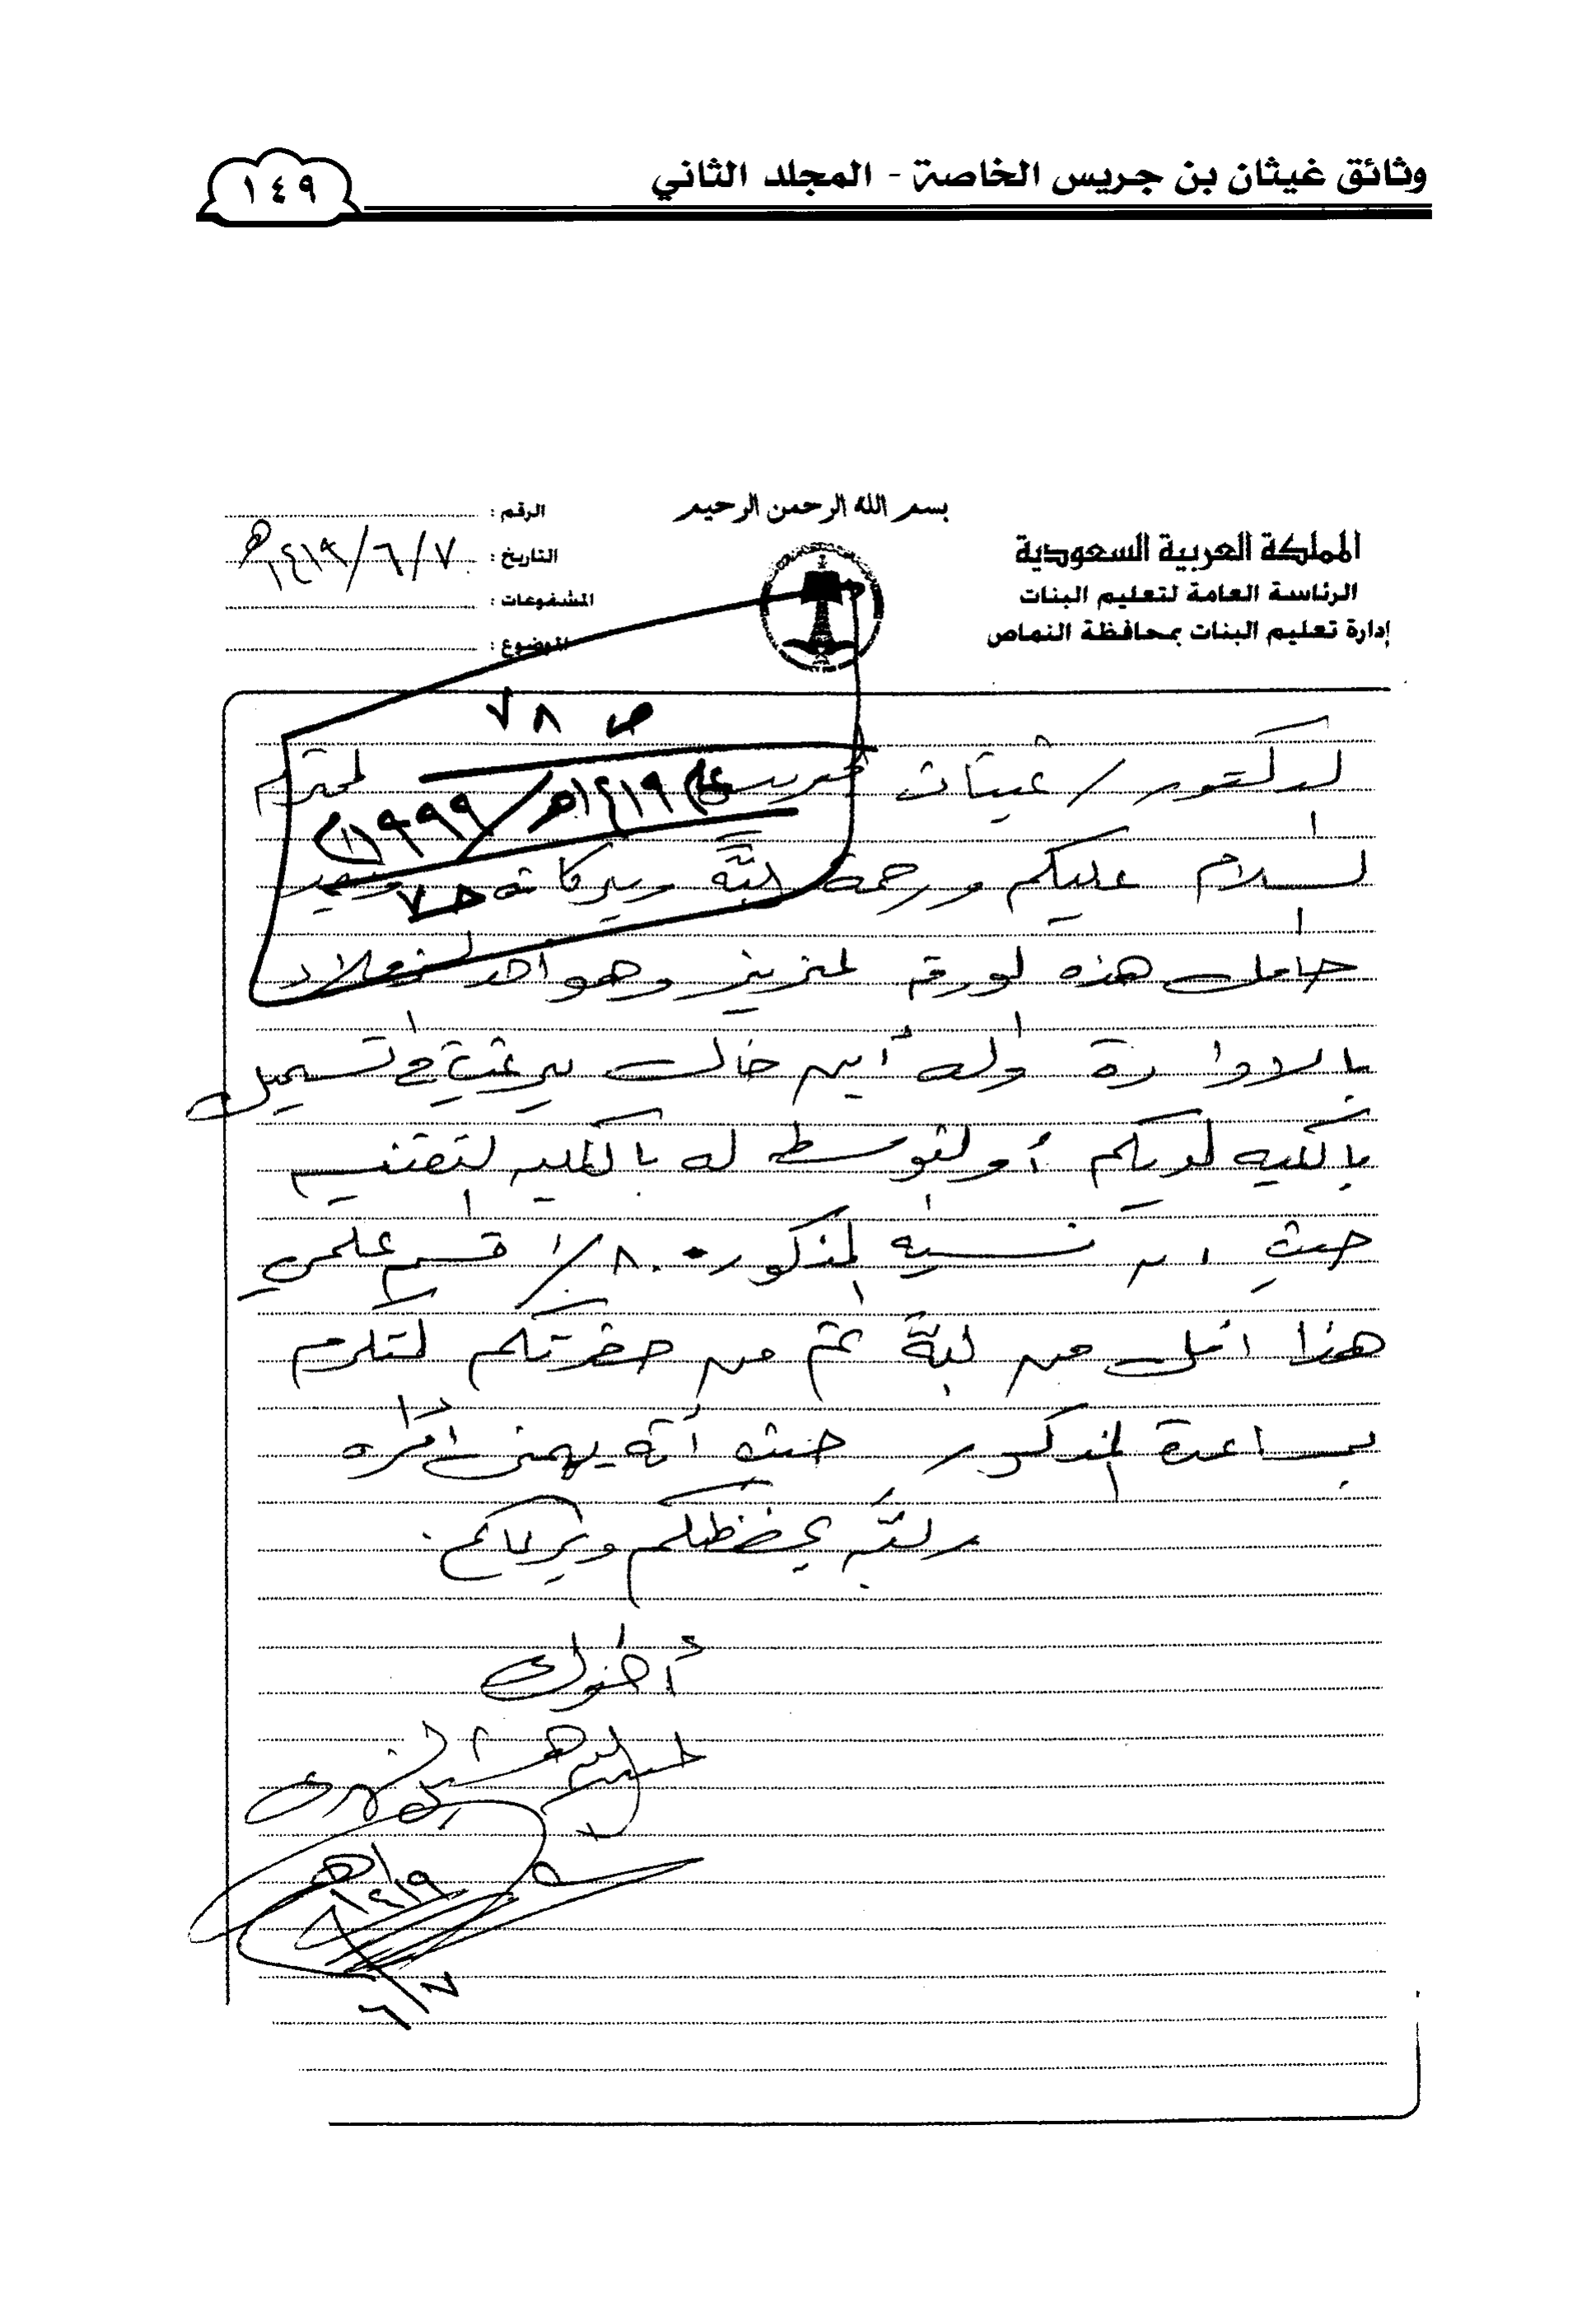 وثائق غيثان بن جريس الخاصة - المجلد الثاني
١٤٩
بسم الله الرحمن الرحيم
المملكة العربية السعودية
الرئاسة العامة لتعليم البنات
إدارة تعليم البنات بمحافظة النماص
الرقم :
التاريخ : ٧/٦/١٤١٩هـ
المشفوعات :
الموضوع :
ص ٧٨
عام ١٤١٩هـ/١٩٩٩م
حـ٧
الدكتور / غيثان جريس المحترم
السلام عليكم ورحمة الله وبركاته وبعد
حامل هذه الورقة عزيز وهو احد الزملاء
بالادارة وله أبن خالت يرغب في تسجيل
بالكليه لديكم أو التوسط له بالكليه التقنيه
حيث ان نسبة المذكور ٨٠/٠ قسم علمي
هذا امل من الله ثم من حضرتكم التكرم
بمساعدة المذكور حيث أنه يهمني امره
والله يحفظكم ويرعاكم
أخوك
الشهري
١٤١٩هـ
٧/٦